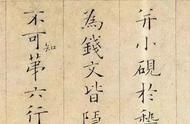 并小硯於
為錢文皆
不可知第六行